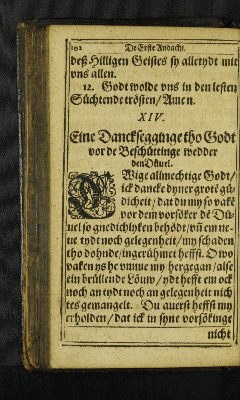 192 De Erste Andacht.
deß Hilligen Geistes sy alletydt mit
vns allen.
12. Godt wolde vns in den lesten
Süchtende trösten / Amen.
XIV.
Eine Dancksegginge tho Godt
vor de Beschüttinge wedder
den Düuel.
O Wige allmechtige Godt /
ick dancke dyner grote gü-
dicheit / dat du my so vakē
vor dem vorsöker dē Dü-
uel so gnedichlyken behödt / vñ em ne-
ne tydt noch gelegenheit / my schaden
tho dohnde / ingerühmet heffst. O wo
vaken ys he vmme my hergegan / alse
ein brüllende Löuw / ydt hefft em ock
noch an tydt noch an gelegenheit nich
tes gemangelt. Du auerst heffst my
erholden / dat ick in syne vorsökinge
nicht